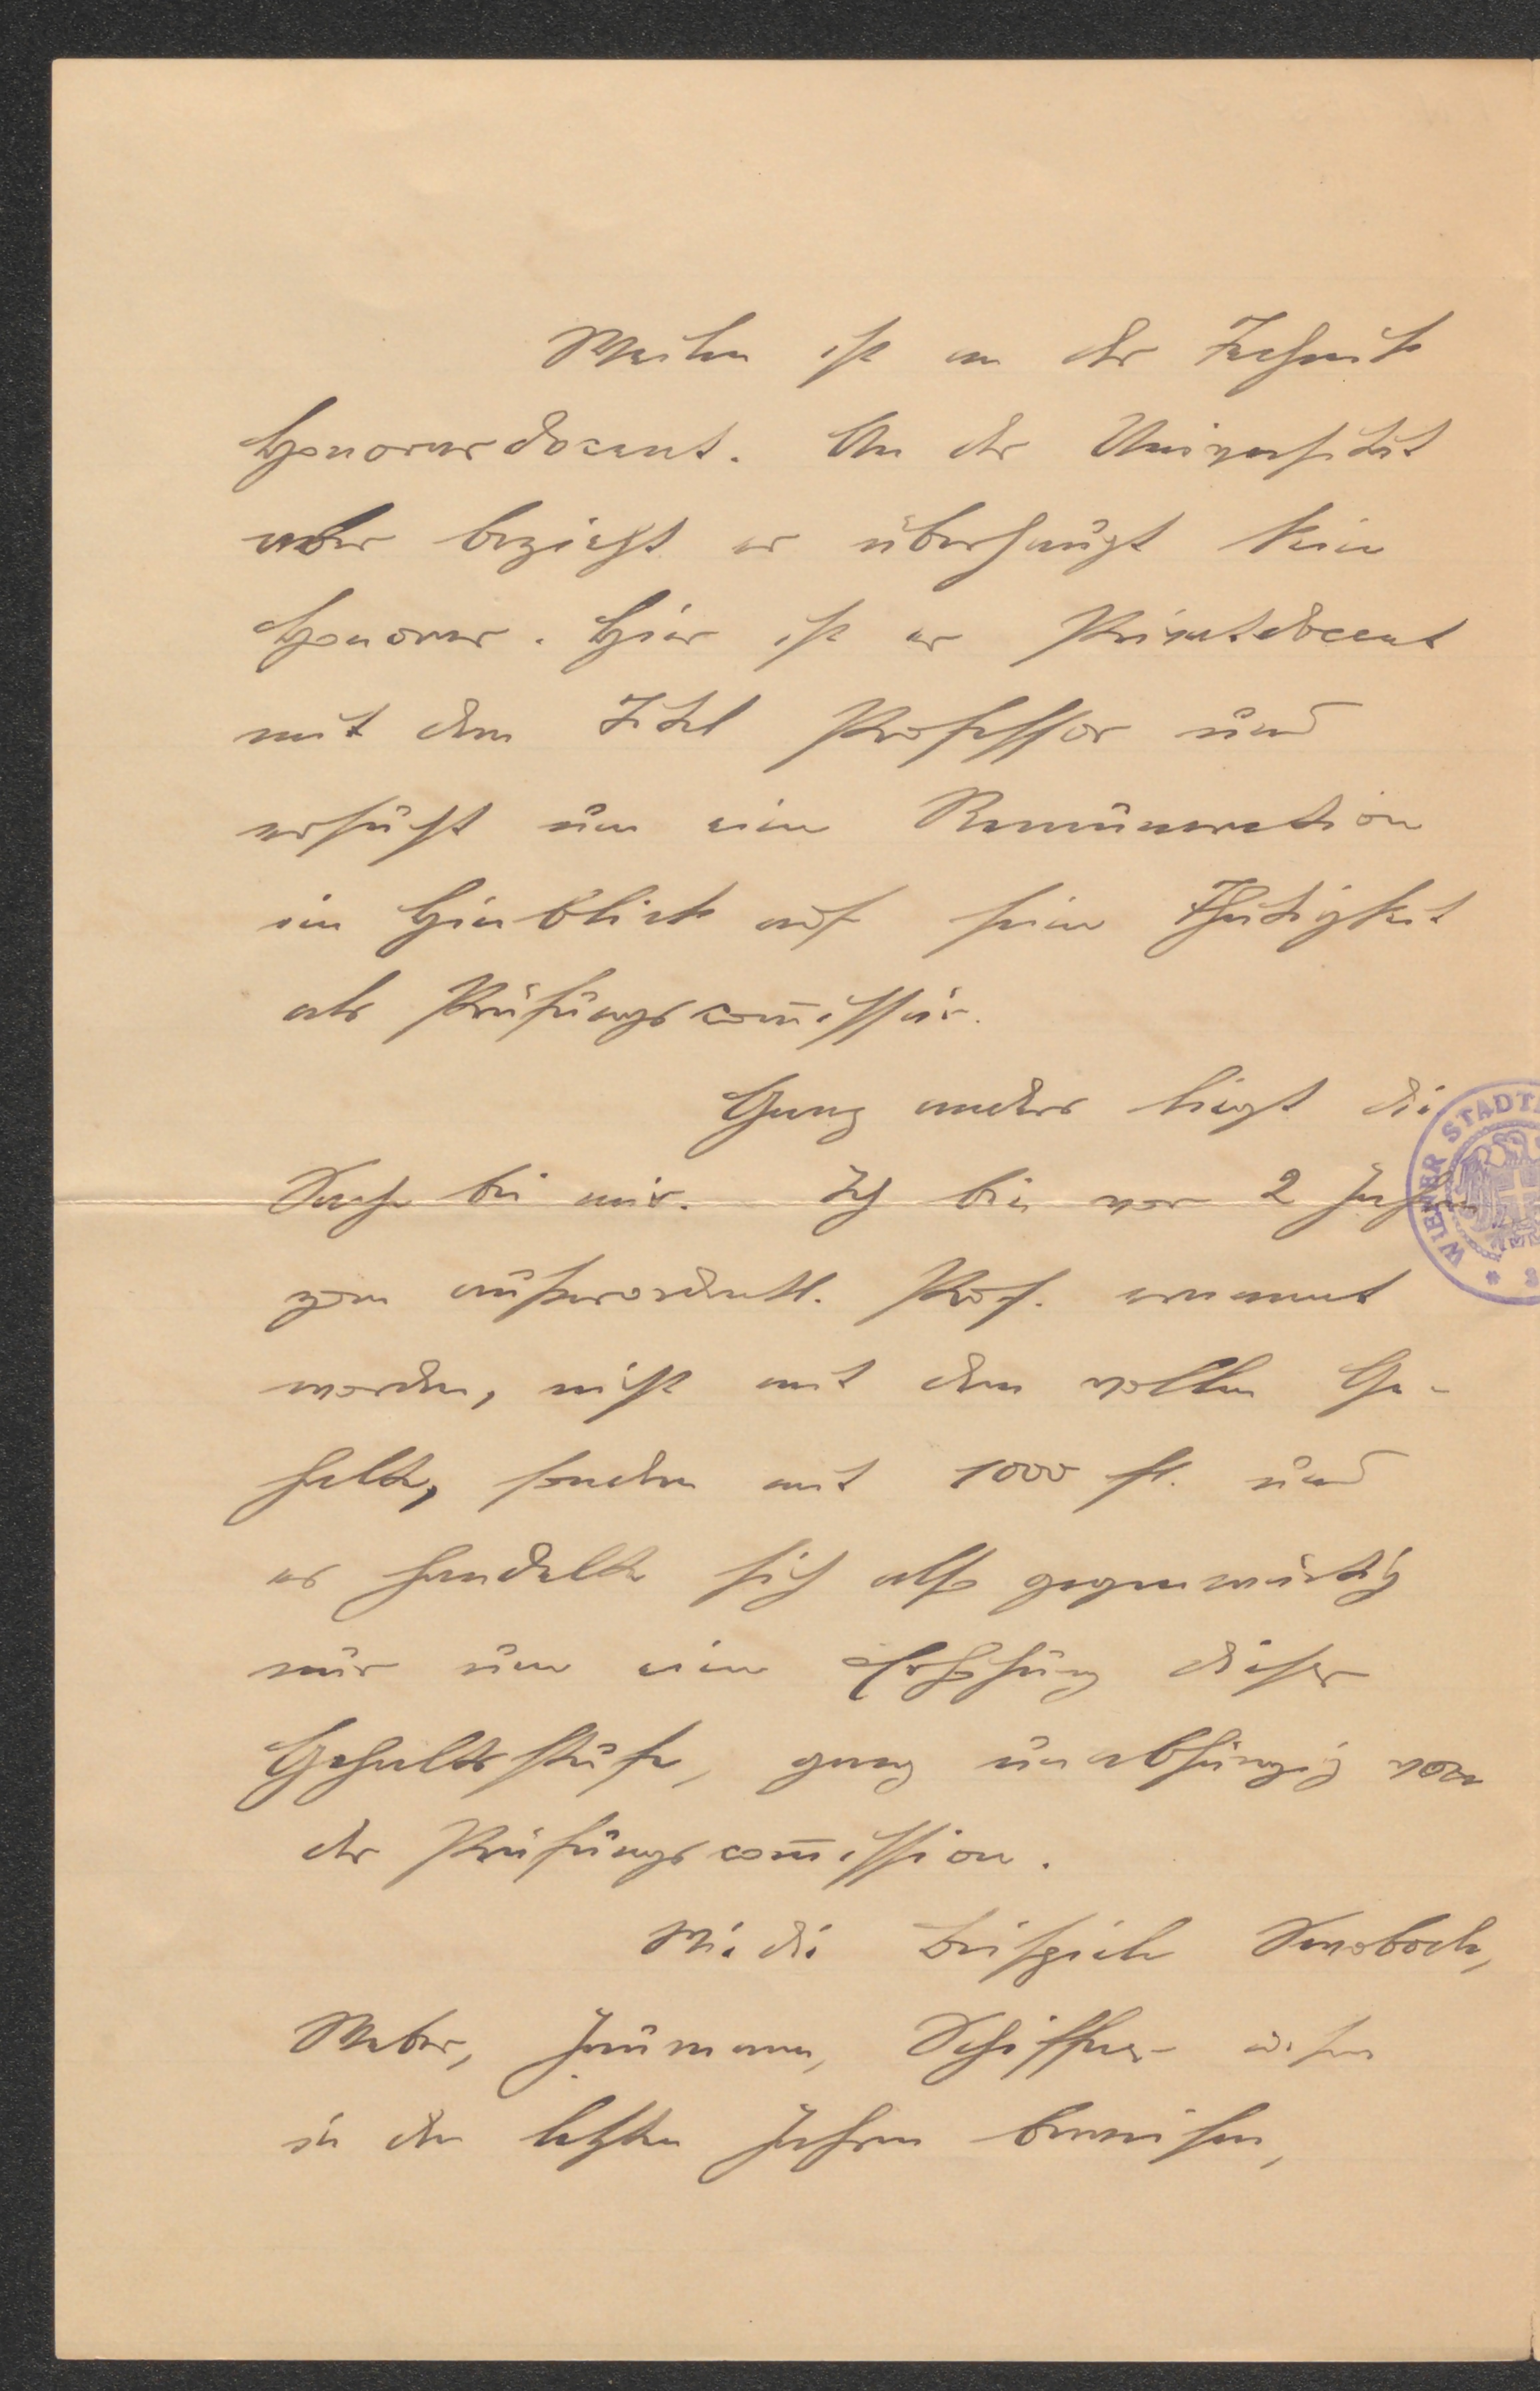 Weilen ist an der Technik
Honorardocent. An der Universität
aber bezieht er überhaupt kein
Honorar. Hier ist er Privatdocent
mit dem Titel Professor und
ersucht um eine Remuneration
im Hinblick auf seine Thätigkeit
als Prüfungscom̅issär.
Ganz anders liegt die
Sache bei mir. Ich bin vor 2 Jahren
zum außerordentl. Prof. ernannt
worden, nicht mit dem vollen Ge-
halte, sondern mit 1000 fl. und
es handelt sich also gegenwärtig
nur um eine Erhöhung dieser
Gehaltsstufe, ganz unabhängig von
der Prüfungscom̅ission.
Wie die Beispiele Swoboda,
Weber, Jaumann, Schiffner
in den letzten Jahren beweisen,
WIENER STADT